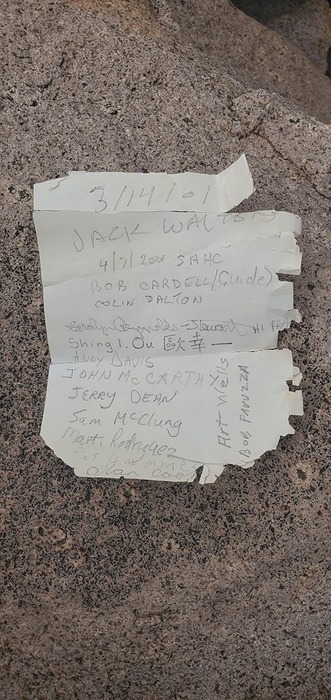 3/14/01
JACK WALTERS
4/7/2001 SAHC
BOB CARDELL (Guide)
COLIN DALTON
Carolyn Reynolds-Stewart
Shing I. Ou 歐幸一
ANDY DAVIS
JOHN McCARTHY
JERRY DEAN
Sam McClung
Marti Rodriguez
Art Wells
BOB FANUZZA